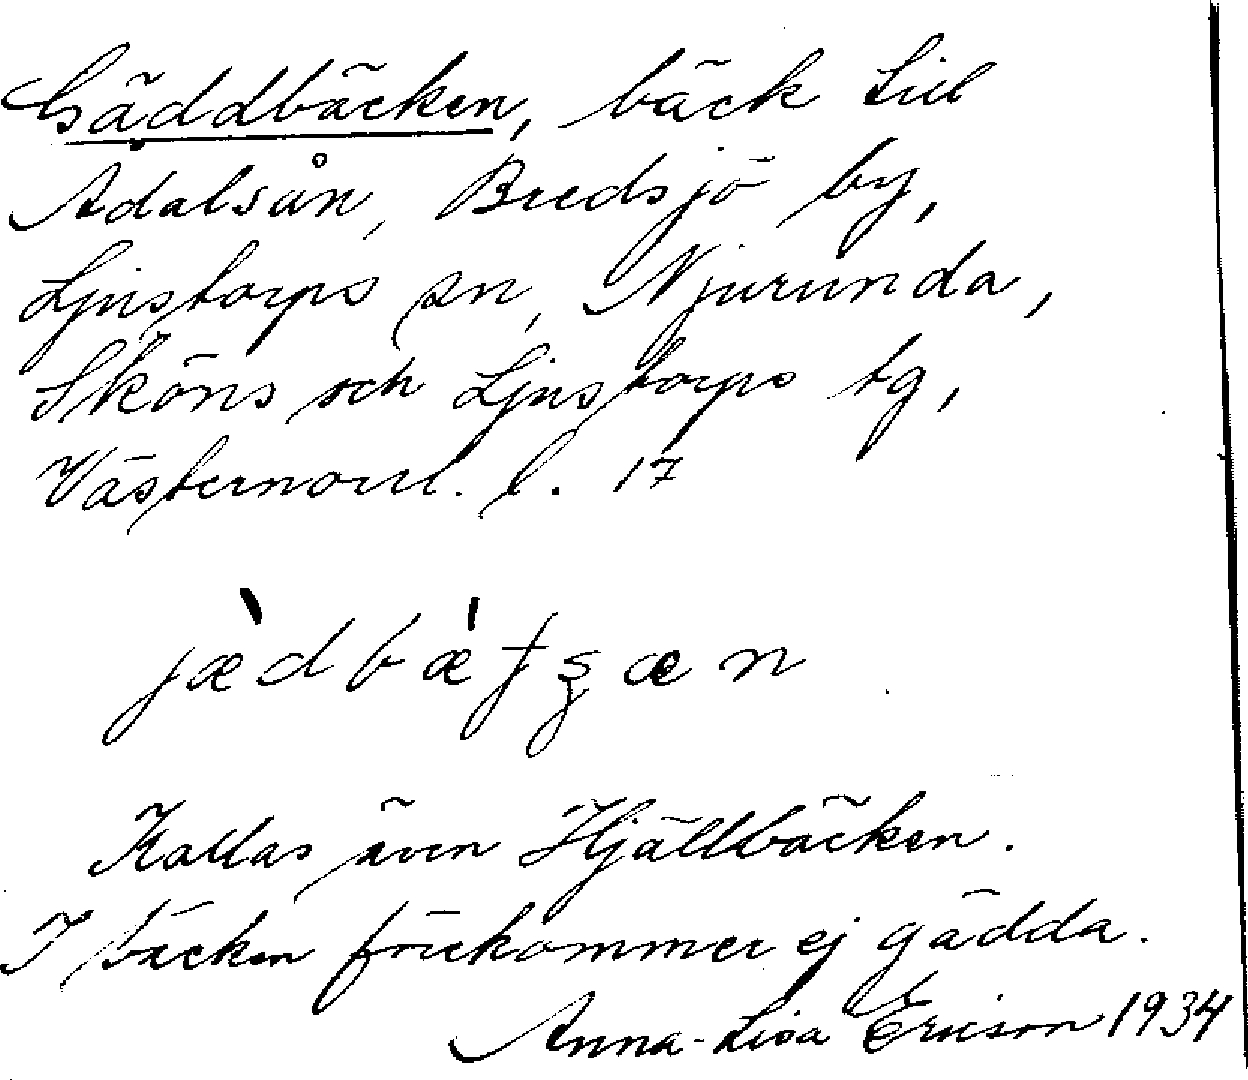 Gäddbäcken, bäck till
Ådalsån, Bredsjö by,
Ljustorps sn, Njurunda,
Sköns och Ljustorps tg,
Västernorrl. l. 17
Kallas även Hjällbäcken.
I bäcken förekommer ej gädda.
Anna-Lisa Ericson 1934